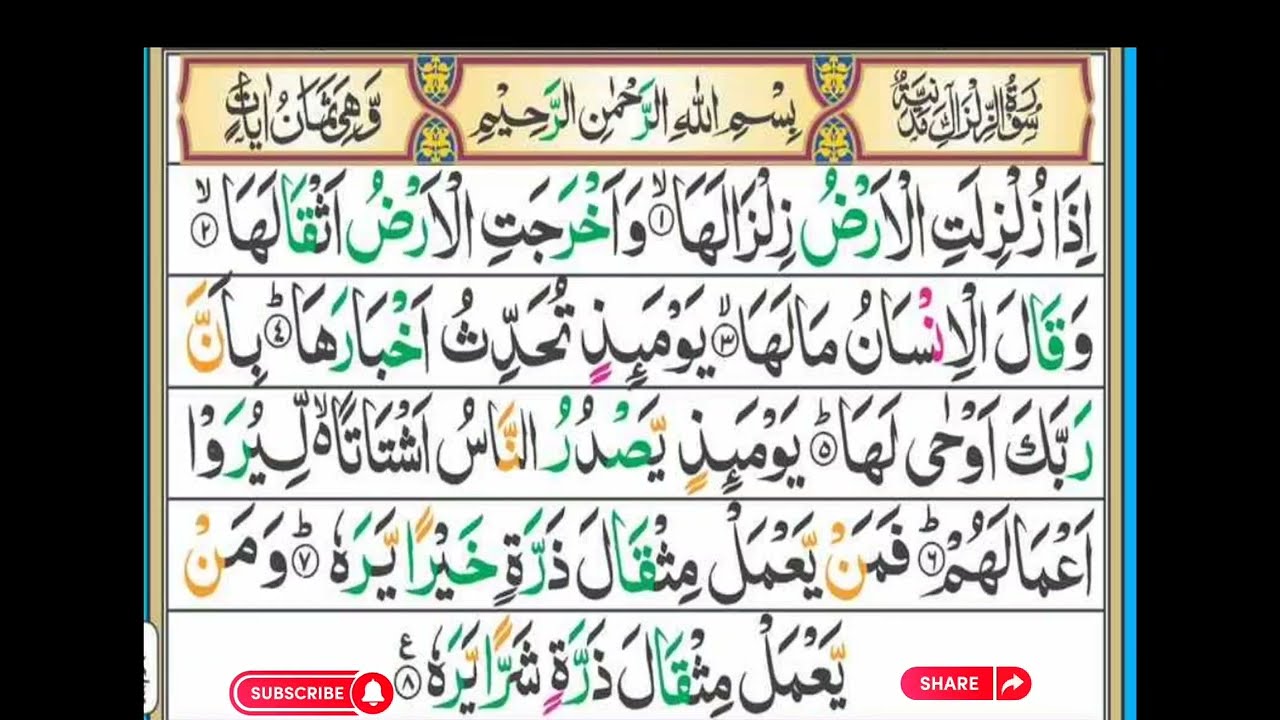 سُوْرَةُ الزِّلْزَالِ مَدَنِيَّةٌ
بِسْمِ اللهِ الرَّحْمٰنِ الرَّحِيْمِ
وَّهِيَ ثَمَانُ اٰيَاتٍ
اِذَا زُلْزِلَتِ الْاَرْضُ زِلْزَالَهَا ۙ﴿۱﴾ وَاَخْرَجَتِ الْاَرْضُ اَثْقَالَهَا ۙ﴿۲﴾
وَقَالَ الْاِنْسَانُ مَا لَهَا ۚ﴿۳﴾ يَوْمَئِذٍ تُحَدِّثُ اَخْبَارَهَا ؕ﴿۴﴾ بِاَنَّ
رَبَّكَ اَوْحٰى لَهَا ؕ﴿۵﴾ يَوْمَئِذٍ يَّصْدُرُ النَّاسُ اَشْتَاتًا ۙ۬ لِّيُرَوْا
اَعْمَالَهُمْ ؕ﴿۶﴾ فَمَنْ يَّعْمَلْ مِثْقَالَ ذَرَّةٍ خَيْرًا يَّرَهٗ ؕ﴿۷﴾ وَمَنْ
يَّعْمَلْ مِثْقَالَ ذَرَّةٍ شَرًّا يَّرَهٗ ﴿۸﴾ ع
SUBSCRIBE
SHARE